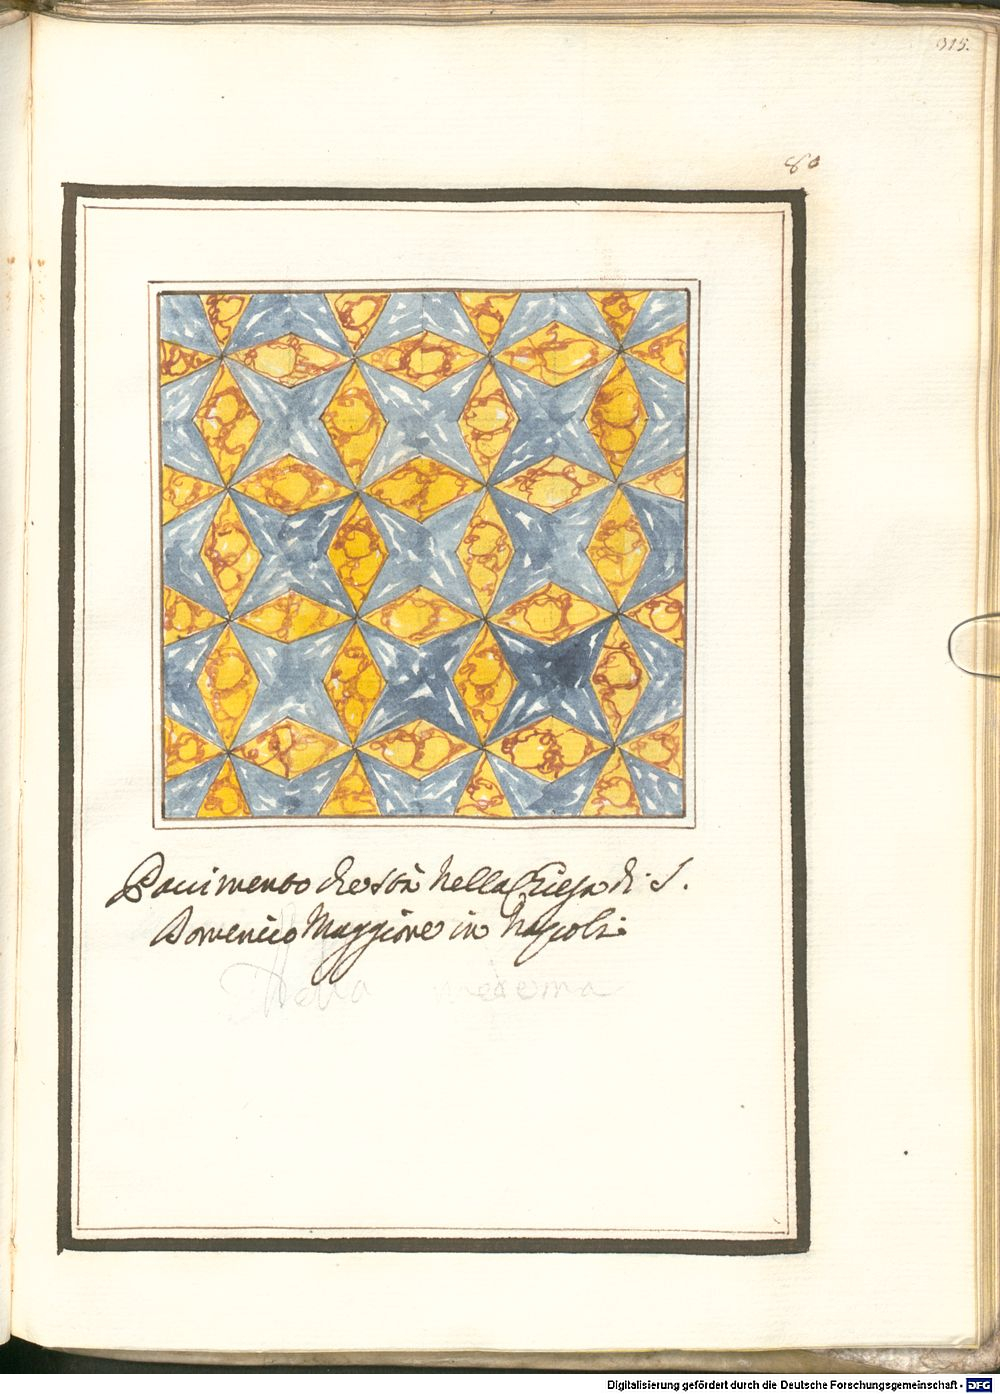 315.
80
Pauimento che stà nella Chiesa di S.
Domenico Maggiore in Napoli.
Della medema
Digitalisierung gefördert durch die Deutsche Forschungsgemeinschaft - DFG